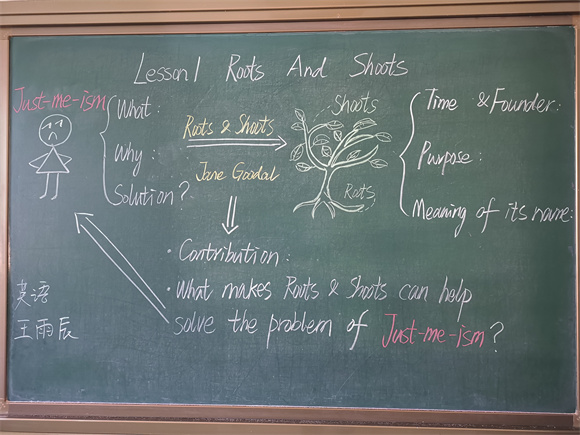 Lesson 1 Roots And Shoots
Just-me-ism
What:
Why:
Solution?
Roots & Shoots
Jane Goodal
Shoots
Roots
Time & Founder:
Purpose:
Meaning of its name:
· Contribution:
· What makes Roots & Shoots can help
solve the problem of Just-me-ism?
英语
王雨辰